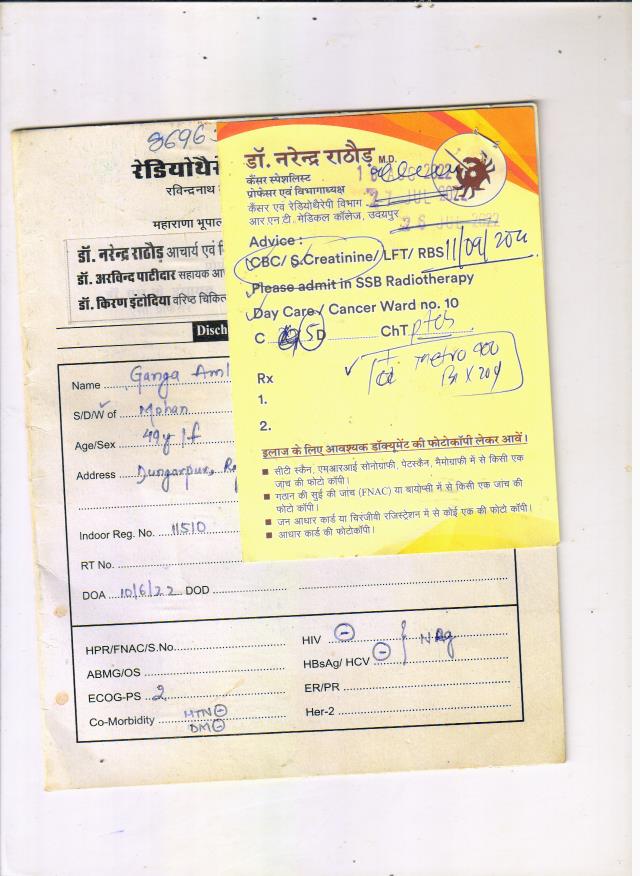 8696
रेडियोथैर
रविन्द्रनाथ
महाराणा भूपाल
डॉ. नरेन्द्र राठौड़ आचार्य एवं वि
डॉ. अरविन्द पाटीदार सहायक आ
डॉ. किरण इंटोदिया वरिष्ठ चिकि
Disch
डॉ. नरेन्द्र राठौड़ M.D.
कैंसर स्पेशलिस्ट
प्रोफेसर एवं विभागाध्यक्ष
27 JUL 2022
कैंसर एवं रेडियोथैरेपी विभाग
आर.एन.टी. मेडिकल कॉलेज, उदयपुर
26 JUL 2022
Advice :
CBC/ S.Creatinine/ LFT/ RBS 11/09/202
Please admit in SSB Radiotherapy
Day Care / Cancer Ward no. 10
C 5 D ChT
metro 400
Rx
1.
2.
इलाज के लिए आवश्यक डॉक्यूमेंट की फोटोकॉपी लेकर आवें।
सीटी स्कैन, एमआरआई सोनोग्राफी, पेटस्कैन, मैमोग्राफी में से किसी एक
जांच की फोटो कॉपी।
गठान की सुई की जांच (FNAC) या बायोप्सी में से किसी एक जांच की
फोटो कॉपी।
जन आधार कार्ड या चिरंजीवी रजिस्ट्रेशन में से कोई एक की फोटो कॉपी।
आधार कार्ड की फोटोकॉपी।
Name Ganga
S/D/W of Mohan
Age/Sex 49y/f
Address Dungarpur, Raj
Indoor Reg. No. 11510
RT No.
DOA 10/6/22 DOD
HPR/FNAC/S.No.
ABMG/OS
ECOG-PS 2
Co-Morbidity HTN⊖
DM⊖
HIV ⊖
HBsAg/ HCV ⊖
ER/PR
Her-2